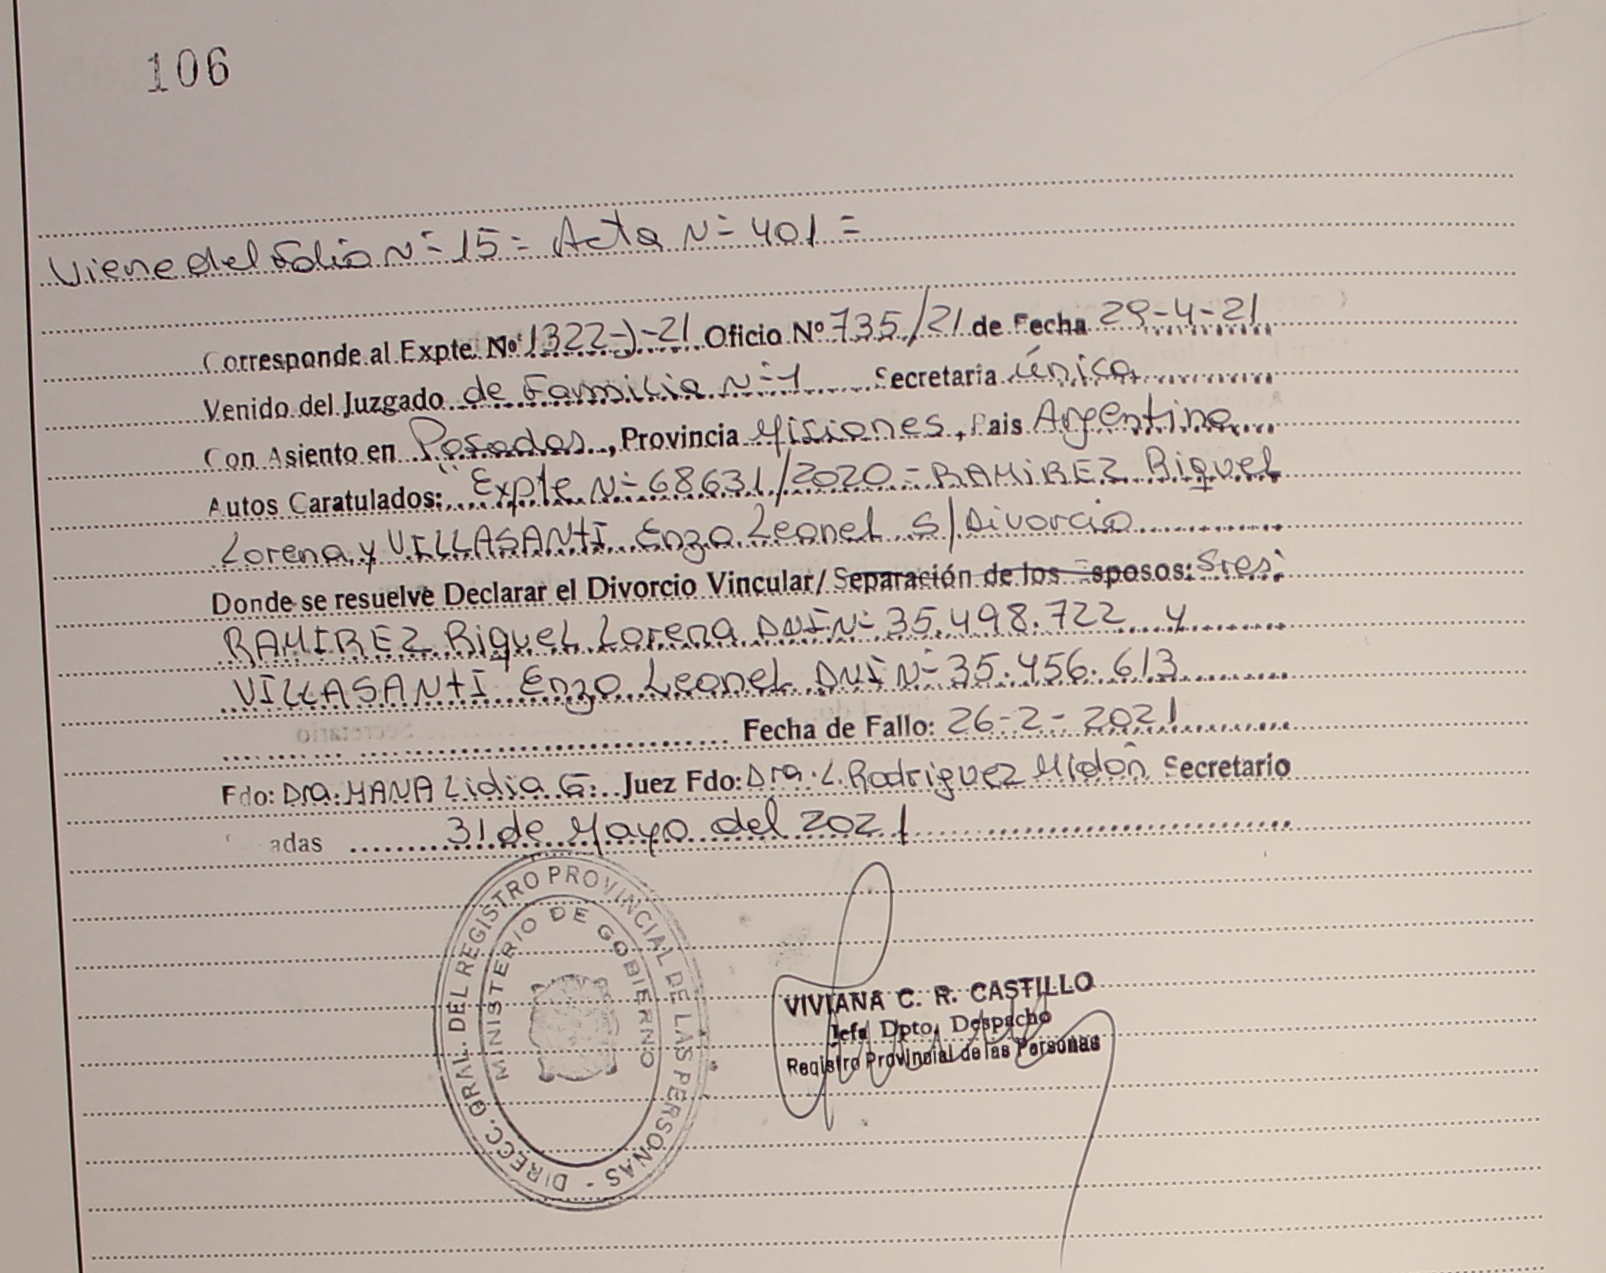 106
Viene del Folio Nº 15 = Acta Nº 401 =
Corresponde al Expte. Nº 1322-J-21 Oficio Nº 735/21 de Fecha 29-4-21
Venido del Juzgado de Familia Nº 1 Secretaria única
Con Asiento en Posadas, Provincia Misiones, Pais Argentina
Autos Caratulados: "Expte Nº 68631/2020 = RAMIREZ Riquel
Lorena y VILLASANTI Enzo Leonel s/Divorcio
Donde se resuelve Declarar el Divorcio Vincular/ Separación de los Esposos: Sres:
RAMIREZ Riquel Lorena DNI Nº 35.498.722 y
VILLASANTI Enzo Leonel DNI Nº 35.456.613
Secretario
Fecha de Fallo: 26-2-2021
Fdo: Dra. Lidia G. Juez Fdo: Dra. L. Rodriguez Midón Secretario
adas 31 de Mayo del 2021
DIRECC. GRAL. DEL REGISTRO PROVINCIAL DE LAS PERSONAS -
MINISTERIO DE GOBIERNO
VIVIANA C. R. CASTILLO
Jefa Dpto. Despacho
Registro Provincial de las Personas